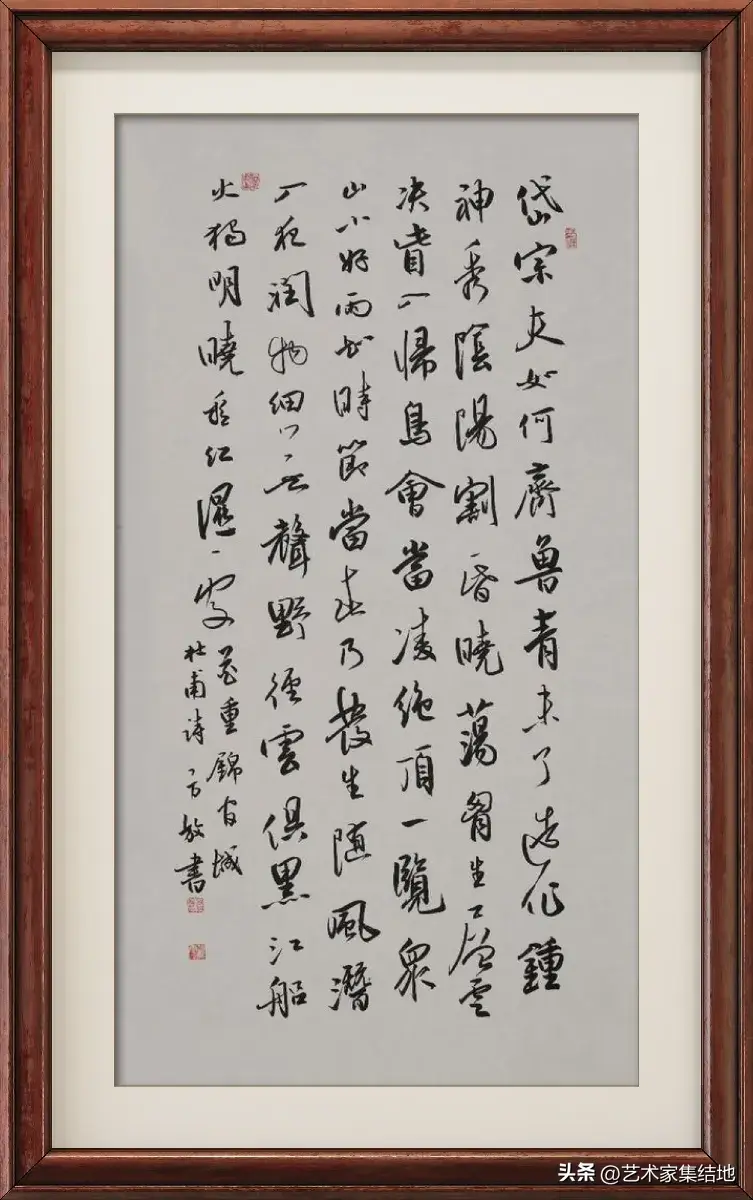 岱宗夫如何齊魯青未了造化鍾
神秀陰陽割昏曉蕩胷生層雲
決眥入歸鳥會當凌絕頂一覽眾
山小好雨知時節當春乃發生随風潛
入夜潤物細無聲野徑雲俱黑江船
火獨明曉看紅濕一處
花重錦官城
杜甫詩 書
头条 @艺术家集结地